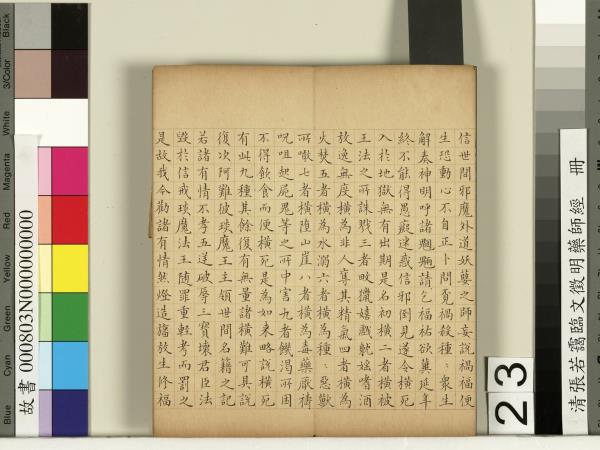 信世間邪魔外道妖孽之師妄說禍福便
生恐動心不自正卜問覓禍殺種﹕眾生
解奏神明呼諸魍魎請乞福祐欲冀延年
終不能得愚癡迷惑信邪倒見遂令橫死
入於地獄無有出期是名初橫二者橫被
王法之所誅戮三者畋獵嬉戲躭婬嗜酒
放逸無度橫為非人奪其精氣四者橫為
火焚五者橫為水溺六者橫為種﹕惡獸
所噉七者橫墮山崖八者橫為毒藥厭禱
呪咀起屍鬼等之所中害九者饑渴所困
不得飲食而便橫死是為如來略說橫死
有此九種其餘復有無量諸橫難可具說
復次阿難彼琰魔王主領世間名籍之記
若諸有情不孝五逆破辱三寶壞君臣法
毀於信戒琰魔法王随罪重輕考而罰之
是故我今勸諸有情然燈造旛放生修福
清張若靄臨文徵明藥師經 冊
23
故書 000803N000000000
Black
3/Color
White
Magenta
Red
Yellow
Green
Cyan
Blue